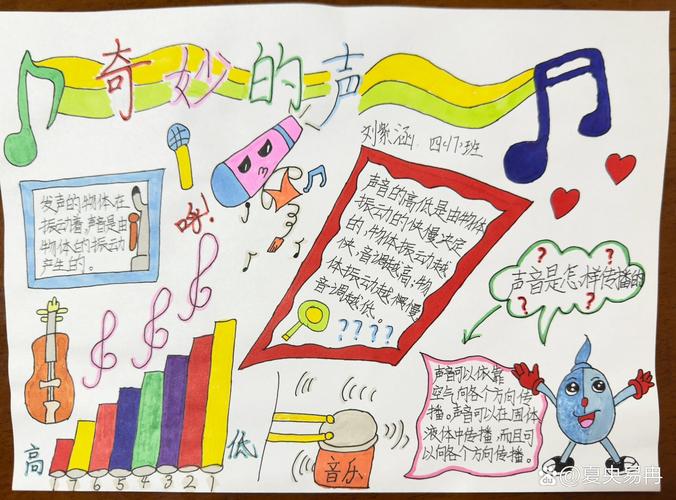 奇妙的声
刘紫涵 四(7)班
发声的物体在
振动着。声音是由
物体的振动
产生的。
声音的高低是由物体
振动的快慢决定
的,物体振动越
快,音调越高,物
体振动越慢
音调越低。
????
? ?
声音是怎样传播的
? ?
声音可以依靠
空气向各个方向传
播。声音可以在固体
液体中传播,而且可
以向各个方向传播。
高
低
7 6 5 4 3 2 1
音乐
夏央易冉